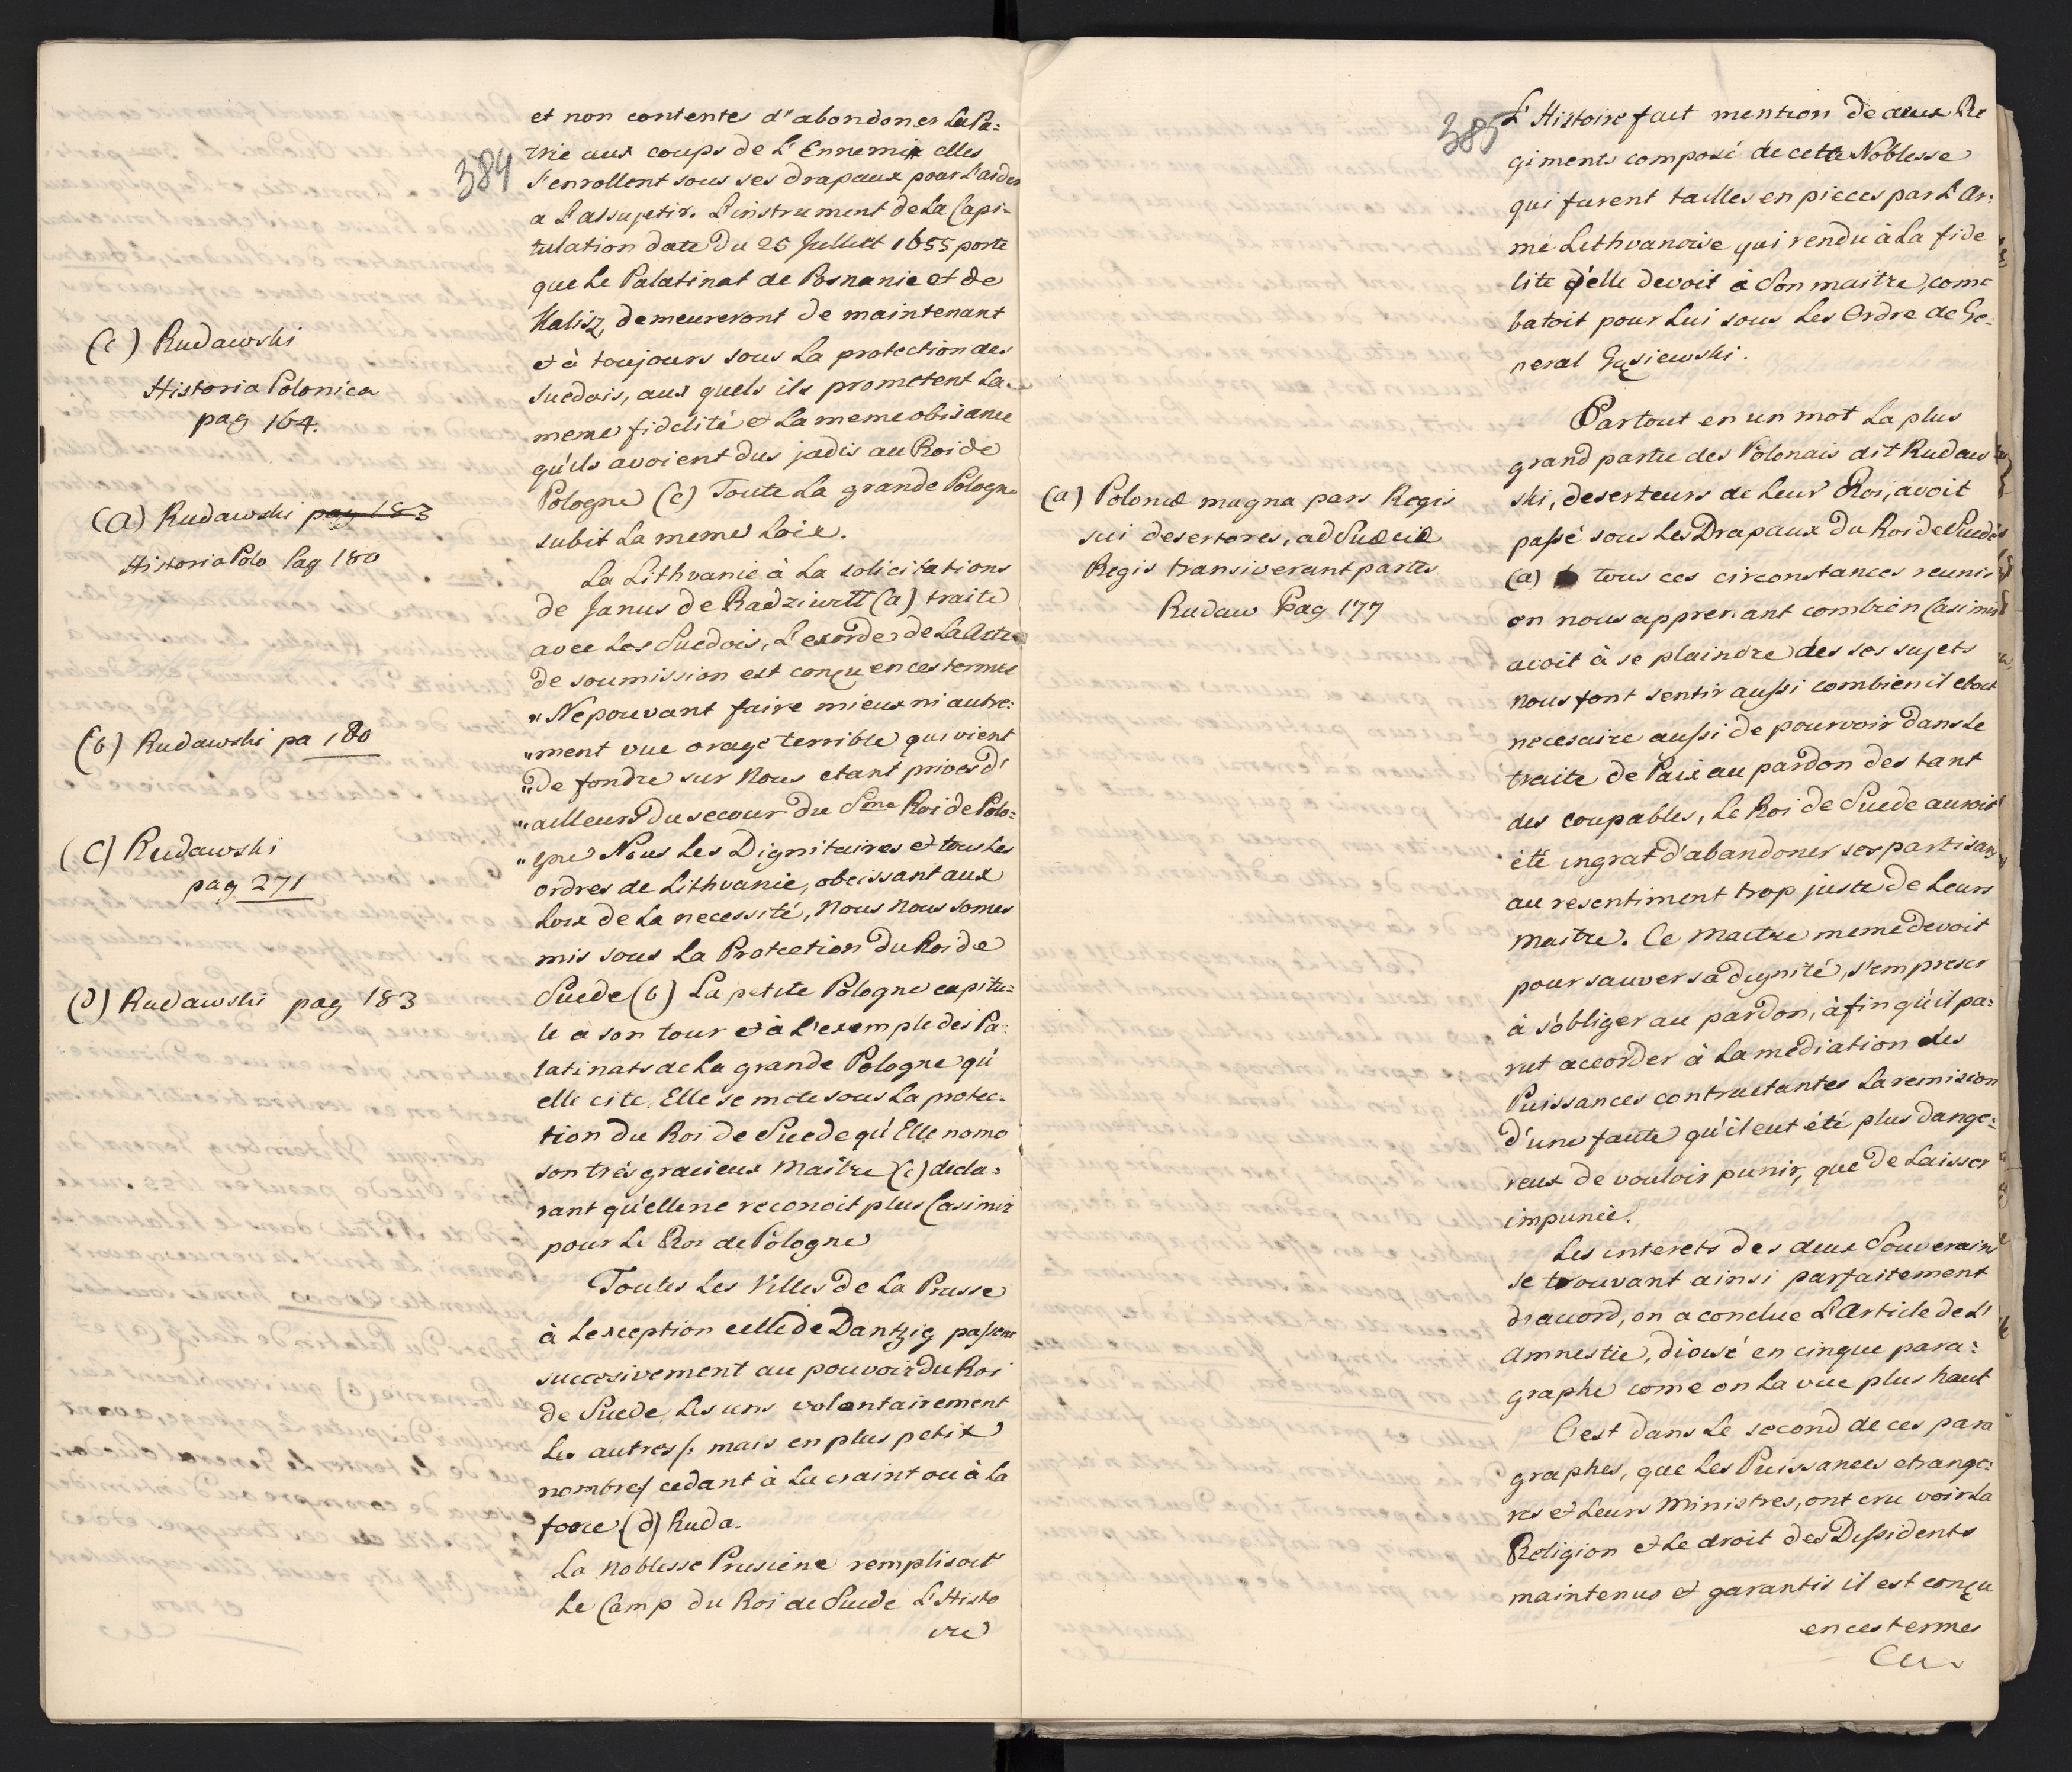 384
et non contentes d'abondoner La Pa=
trie aux coups de L'Ennemi elles
s'enrollent sous ses drapaux pour L'aider
a L'assujetir. L'instrument de La Capi-
tulation date du 25 Juillet 1655 porte
que Le Palatinat de Posnanie et de
Kalisz, demeureront de maintenant
et à toujours sous La protection des
Suedois, aux quels ils prometent La
meme fidelité et La meme obisance
qu'ils avoient dus jadis au Roi de
Pologne (c) Toute La grande Pologne
subit La meme Loix.
La Lithvanie à La solicitations
de Janus de Radziwill (a) traite
avec Les Suedois, L'exorde de La Acte
de soumission est conçu en ces termes
"Ne pouvant faire mieux ni autre:
"ment vue orage terrible qui vient
"De fondre sur Nous etant privés d'
"ailleurs du secour du Sme Roi de Polo=
"gne Nous Les Dignitaires et tous Les
ordres de Lithvanie, obeissant aux
Loix de La necessité, Nous Nous somes
mis sous La Protection du Roi de
Suede (b) La petite Pologne capitu=
le a son tour et à L'exemple des Pa-
latinats de La grande Pologne qu'
elle cite, Elle se mete sous La protec-
tion du Roi de Suede qu'Elle nome
son très gracieux Maître (c) decla=
rant qu'elle ne reconoit plus Casimir
pour Le Roi de Pologne
Toutes Les Villes de La Prusse
à Lexception celle de Dantzig passent
succesivement au pouvoir du Roi
de Suede, Les uns volontairement
Les autres /: mais en plus petit
nombre/ cedant à La craint ou à La
force (d) Ruda-
La Noblesse Prusiene remplisoit
Le Camp du Roi de Suede L'Histo
ire
(c) Rudawski
Historia Polonica
pag 164.
(a) Rudawski pag 183
Historia Polo Pag 180
(b) Rudawski pa 180
(C) Rudawski
pag 271
(d) Rudawski pag 183
385
L'Histoire fait mention de deux Re
giments composé de cette Noblesse
qui furent tailles en pieces par L'Ar:
mé Lithvanoise qui rendu à La fide
lite q'elle devoit à Son maitre, come
batoit pour Lui sous Les Ordre de Ge-
neral Gąsiewski.
Partout en un mot La plus
grand partie des Polonais dit Rudaw
ski, deserteurs de Leur Roi, avoit
passé sous Les Drapaux du Roi de Suede
(a) tous ces circonstances reunis
en nous apprenant combien Casimir
avoit à se plaindre des ses sujets
nous font sentir aussi combien il etoit
necesaire aussi de pourvoir dans Le
traite de Paix au pardon des tant
des coupables, Le Roi de Suede auroit
été ingrat d'abandoner ses partisans
au resentiment trop juste de Leurs
maitre. Ce Maitre meme devoit
pour sauver sa dignité, s'empreser
à s'obliger au pardon, à fin qu'il pa:
rut accorder à La mediation des
Puissances contractantes La remision
d'une faute qu'il eut été plus dange:
reux de vouloir punir, que de Laisser
impunie.
Les interets des deux Souverains
se trouvant ainsi parfaitement
d'accord, on a conclue L'Article de L'
Amnestie, divisé en cinque para:
graphe come on La vue plus haut
C'est dans Le second de ces para
graphes, que Les Puissances etrange:
res et Leurs Ministres, ont cru voir La
Religion et Le droit des Dissidents
maintenus et garantis il est conçu
en ces termes
(a) Poloniæ magna pars Regis
sui desertores, ad Sueciæ
Regis transiverunt partes
Rudaw Pag 177